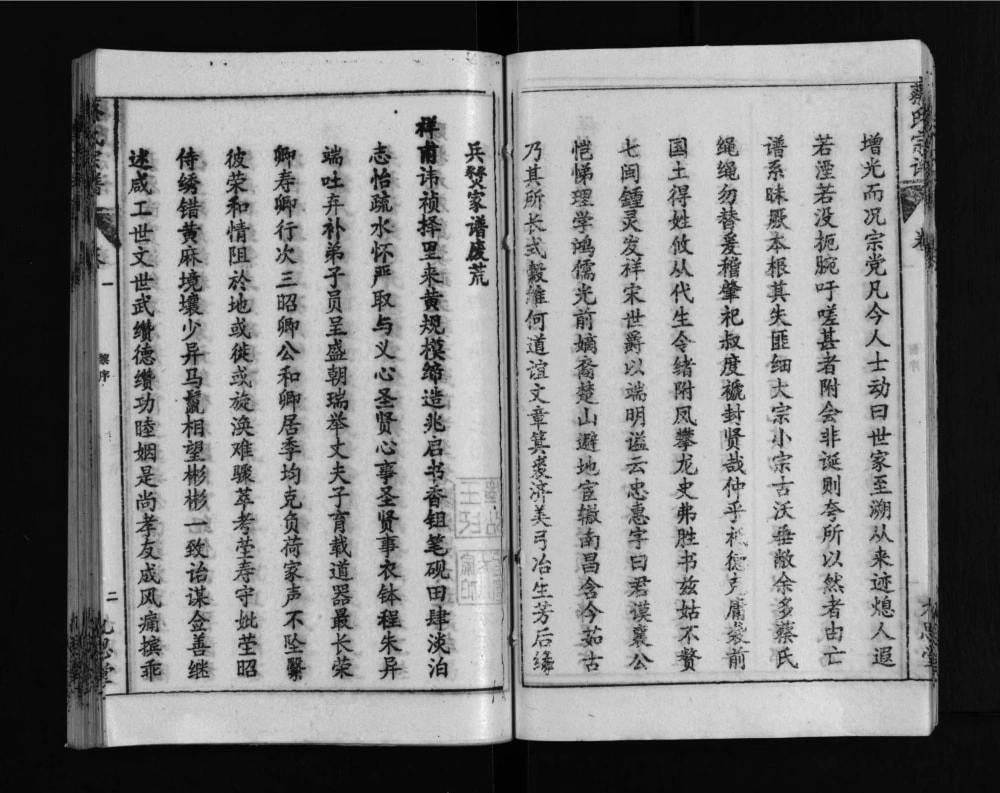 增光而况宗党凡今人士动曰世家至溯从来迹熄人遐
若湮若没扼腕吁嗟甚者附会非诞则夸所以然者由亡
谱系昧厥本根其失匪细大宗小宗古沃垂敝余多蔡氏
绳绳勿替爰稽肇祀叔度褫封贤哉仲乎祗德克庸袭前
国土得姓攸从代生令绪附凤攀龙史弗胜书兹姑不赘
七闽锺灵发祥宋世爵以端明谥云忠惠字曰君谟襄公
恺悌理学鸿儒光前嫡裔楚山避地宦辙南昌含今茹古
乃其所长式穀维何道谊文章箕裘济美弓冶生芳后缘
兵燹家谱废荒
祥甫讳祯择里来黄规模缔造兆启书香钼笔砚田肆淡泊
志怡疏水怀严取与义心圣贤心事圣贤事衣钵程朱异
端吐弃补弟子员呈盛朝瑞举丈夫子育载道器最长荣
卿寿卿行次三昭卿公和卿居季均克负荷家声不坠繄
彼荣和情阻於地或徙或旋涣难骤萃考茔寿守妣茔昭
侍绣错黄麻境壤少异马鬣相望彬彬一致诒谋佥善继
述咸工世文世武缵德缵功睦姻是尚孝友成风痛摈乖
一
黎序
二